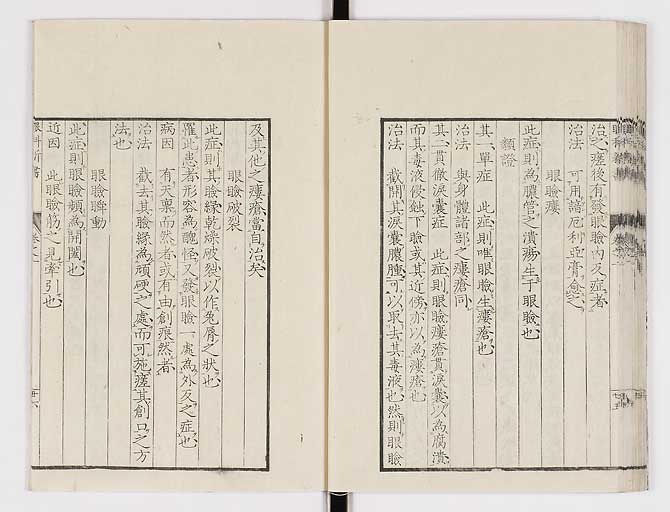 治之瘥後有發眼瞼内反症者
治法　可用諳厄利亞膏愈之
眼瞼瘻
此症則為膿管之潰瘍生于眼瞼也
類證
其一單症　此症則唯眼瞼生瘻瘡也
治法　與身體諸部之瘻瘡同
其二貫徹淚囊症　此症則眼瞼瘻瘡貫淚囊以為腐潰
而其毒液侵蝕下瞼或其近傍亦以為瘻瘡也
治法　截開其淚囊膿腫可以取去其毒液也然則眼瞼
及其他之瘻瘡當自治矣
眼瞼破裂
此症則其瞼緣乾燥破裂以作兔脣之狀也
罹此患者形容為醜怪又發眼瞼一處為外反之症也
病因　有天稟而然者或有由創痕然者
治法　截去其瞼緣為頑硬之處而可施瘥其創口之方
法也
眼瞼瞬動
此症則眼瞼頻為開闔也
近因　此眼瞼筋之見牽引也
眼科新書
卷之二
廿六